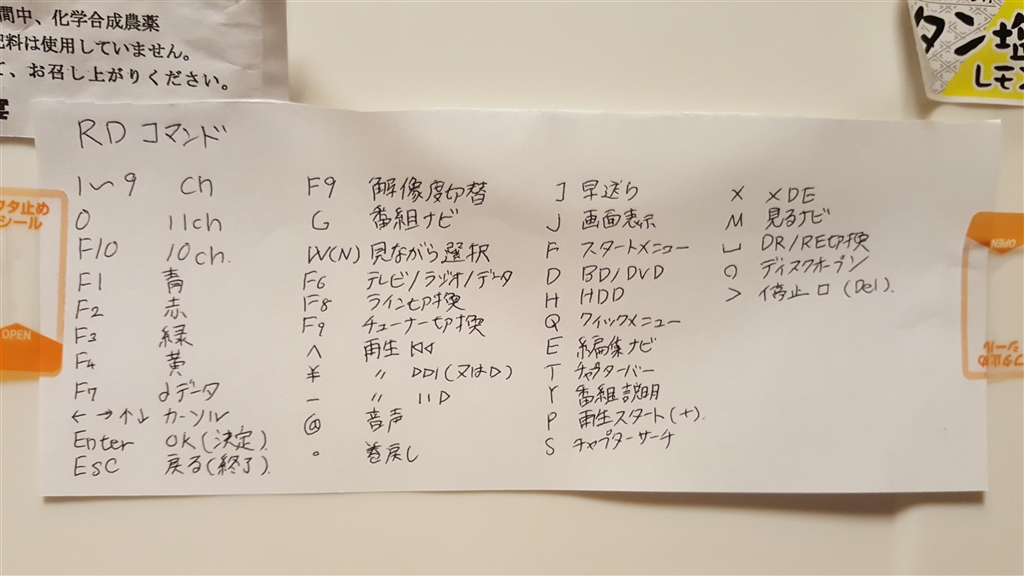 間中、化学合成農薬
肥料は使用していません。
て、お召し上がりください。
タン塩
レモン
タ止め
シール
OPEN
OPEN
タ止め
シール
RDコマンド
1〜9 ch
0 11ch
F10 10ch.
F1 青
F2 赤
F3 緑
F4 黄
F7 dデータ
←→↑↓ カーソル
Enter OK(決定).
ESC 戻る(終了).
F9 解像度切替
G 番組ナビ
W(N) 見ながら選択
F6 テレビ/ラジオ/データ
F8 ライン切換
F9 チューナー切換
^ 再生 |◁◁
¥ 〃 ▷▷|(又は▷)
- 〃 ||▷
@ 音声
。 巻戻し
J 早送り
J 画面表示
F スタートメニュー
D BD/DVD
H HDD
Q クイックメニュー
E 編集ナビ
T チャプターバー
Y 番組説明
P 再生スタート(+).
S チャプターサーチ
X XDE
M 見るナビ
␣ DR/RE切換
O ディスクオープン
> 停止 □ (Del).